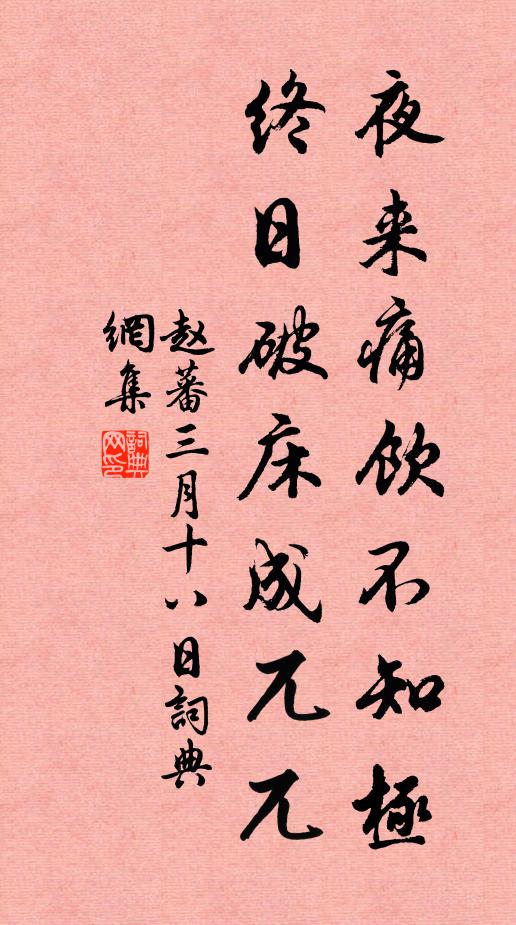 夜来痛饮不知極
终日破床成兀兀
赵蕃三月十八日詞典
網集
詞典网印